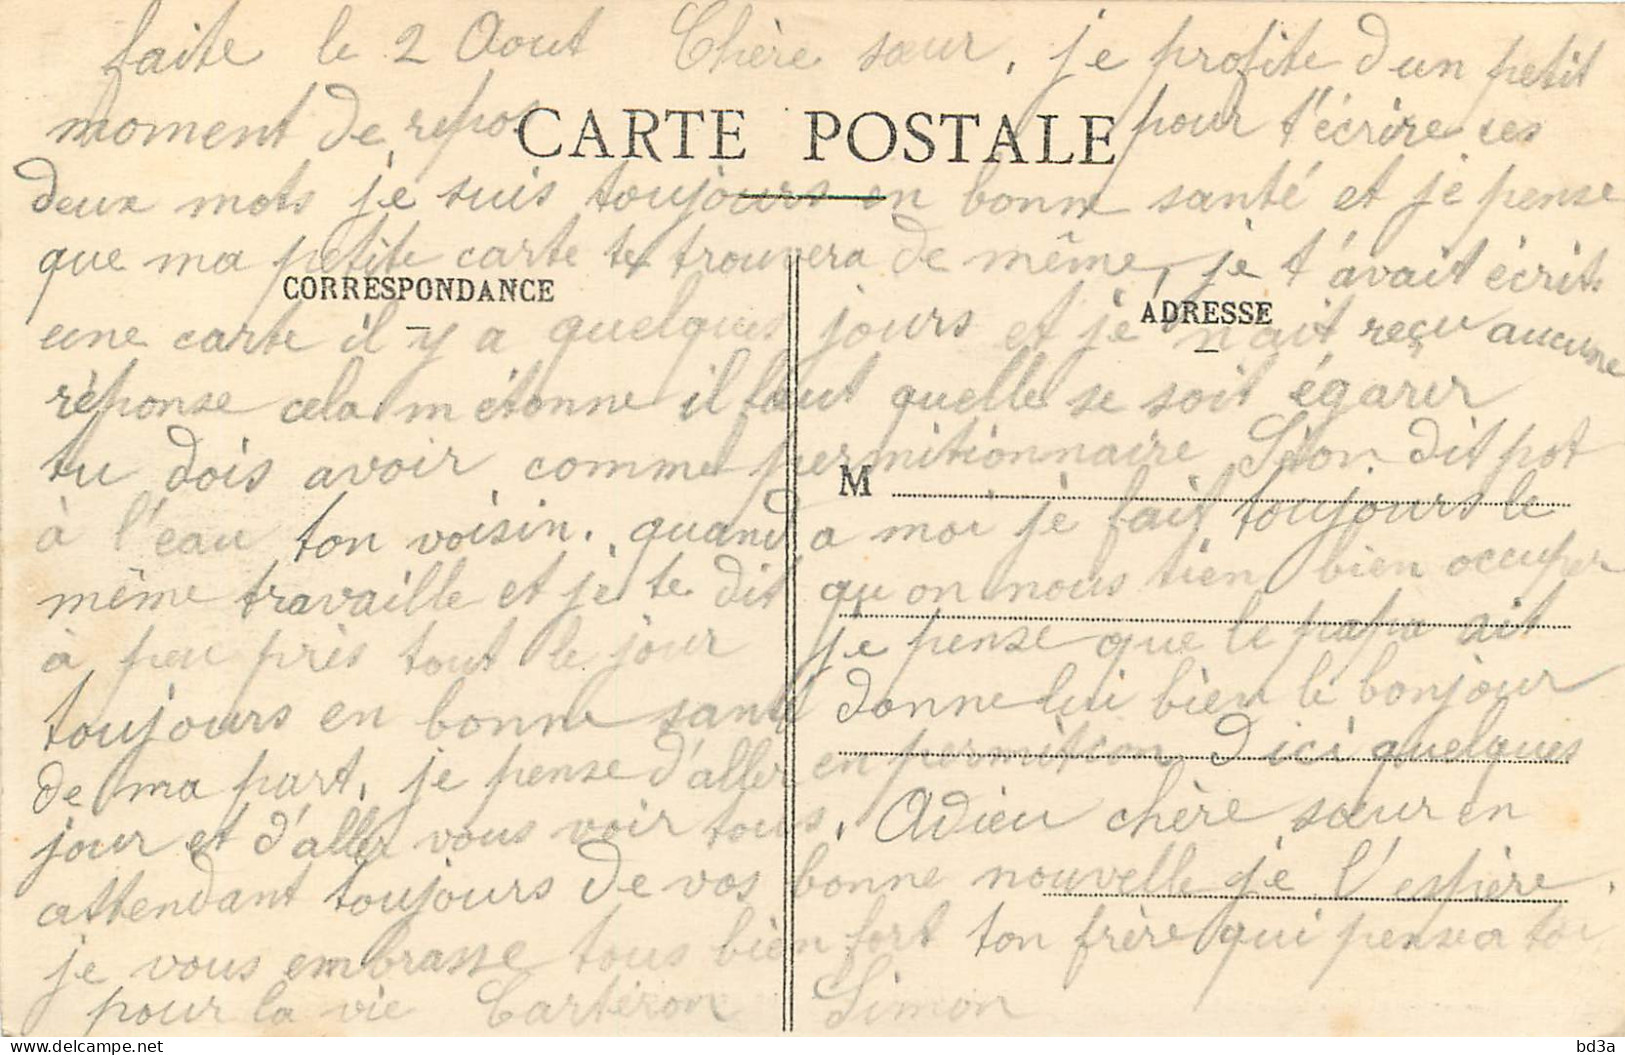 faite le 2 Aout Chère sœur, je profite d'un petit
moment de repos pour t'écrire ses
CARTE POSTALE
deux mots je suis toujours en bonne santé et je pense
que ma petite carte te trouvera de même, je t'avait écrit
CORRESPONDANCE
ADRESSE
une carte il y a quelques jours et je n'ait reçu aucune
réponse cela m'étonne il faut quelle se soit égarer
tu dois avoir comme permitionnaire dit pot
M
à l'eau ton voisin. quand a moi je fait toujours le
même travaille et je te dit qu on nous tien bien occuper
à peu près tout le jour je pense que le papa ait
toujours en bonne santé donne lui bien le bonjour
de ma part, je pense d'aller en permition d ici quelques
jour et d'aller vous voir tous, Adieu chère sœur en
attendant toujours de vos bonne nouvelle je l'espière,
je vous embrasse tous bien fort ton frère qui pense a toi
pour la vie Cartéron Simon
bd3a